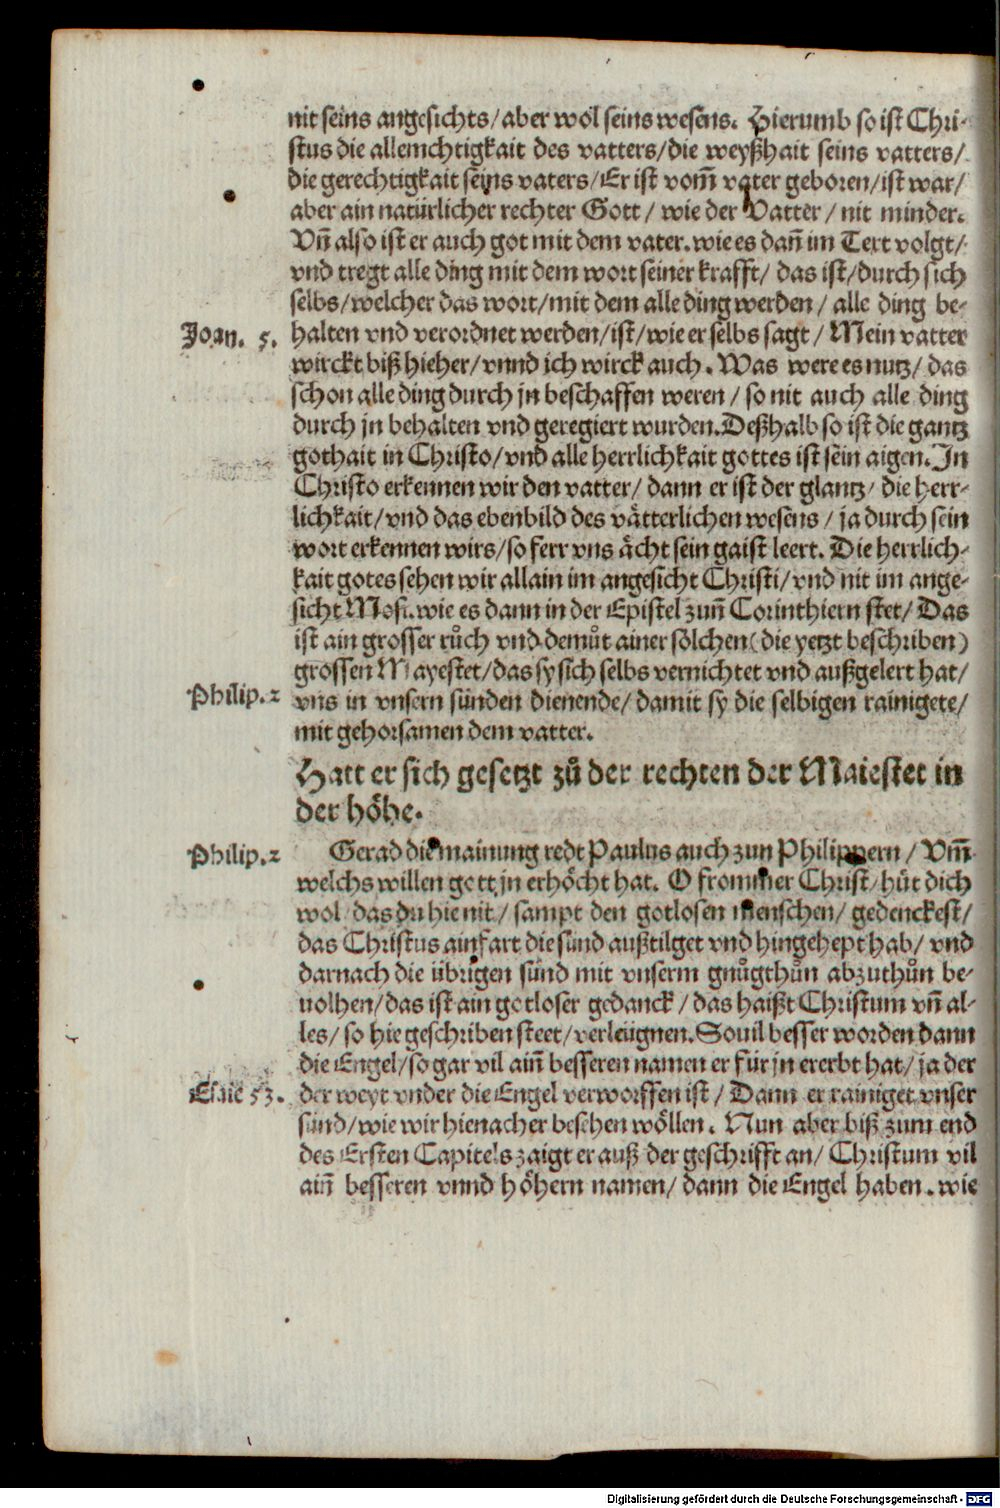 nit seins angesichts/ aber wol seins wesens. Hierumb so ist Chri-
stus die allemchtigkait des vatters/ die weyßhait seins vatters/
die gerechtigkait seins vaters/ Er ist vom̃ vater geboren/ ist war/
aber ain natürlicher rechter Gott / wie der Vatter / nit minder.
Vñ also ist er auch got mit dem vater. wie es dañ im Text volgt/
vnd tregt alle ding mit dem wort seiner krafft/ das ist/ durch sich
selbs/ welcher das wort/ mit dem alle ding werden / alle ding be-
Joan. 5. halten vnd verordnet werden/ ist/ wie er selbs sagt / Mein vatter
wirckt biß hieher/ vnnd ich wirck auch. Was were es nutz/ das
schon alle ding durch jn beschaffen weren / so nit auch alle ding
durch jn behalten vnd geregiert wurden. Deßhalb so ist die gantz
gothait in Christo/ vnd alle herrlichkait gottes ist sein aigen. In
Christo erkennen wir den vatter/ dann er ist der glantz/ die herr-
lichkait/ vnd das ebenbild des vätterlichen wesens / ja durch sein
wort erkennen wirs/ so ferr vns ächt sein gaist leert. Die herrlich-
kait gotes sehen wir allain im angesicht Christi/ vnd nit im ange-
sicht Mosi. wie es dann in der Epistel zuñ Corinthiern stet/ Das
ist ain grosser růch vnd demůt ainer sölchen (die yetzt beschriben)
grossen Mayestet/ das sy sich selbs vernichtet vnd außgelert hat/
Philip. 2 vns in vnsern sünden dienende/ damit sy die selbigen rainigete/
mit gehorsamen dem vatter.
Hatt er sich gesetzt zů der rechten der Maiestet in
der höhe.
Philip. 2 Gerad die mainung redt Paulus auch zun Philippern / Vm̃
welchs willen gott jn erhöcht hat. O frommer Christ/ hüt dich
wol das du hie nit / sampt den gotlosen menschen/ gedenckest/
das Christus ainfart die sünd außtilget vnd hingehept hab/ vnd
darnach die übrigen sünd mit vnserm gnůgthůn abzuthůn be-
uolhen/ das ist ain gotloser gedanck / das haißt Christum vñ al-
les/ so hie geschriben steet/ verleügnen. Souil besser worden dann
die Engel/ so gar vil aiñ besseren namen er für jn ererbt hat/ ja der
Esaie 53. der weyt vnder die Engel verworffen ist / Dann er rainiget vnser
sünd/ wie wir hienacher besehen wöllen. Nun aber biß zum end
des Ersten Capitels zaigt er auß der geschrifft an/ Christum vil
aiñ besseren vnnd höhern namen/ dann die Engel haben. wie
Digitalisierung gefördert durch die Deutsche Forschungsgemeinschaft - DFG